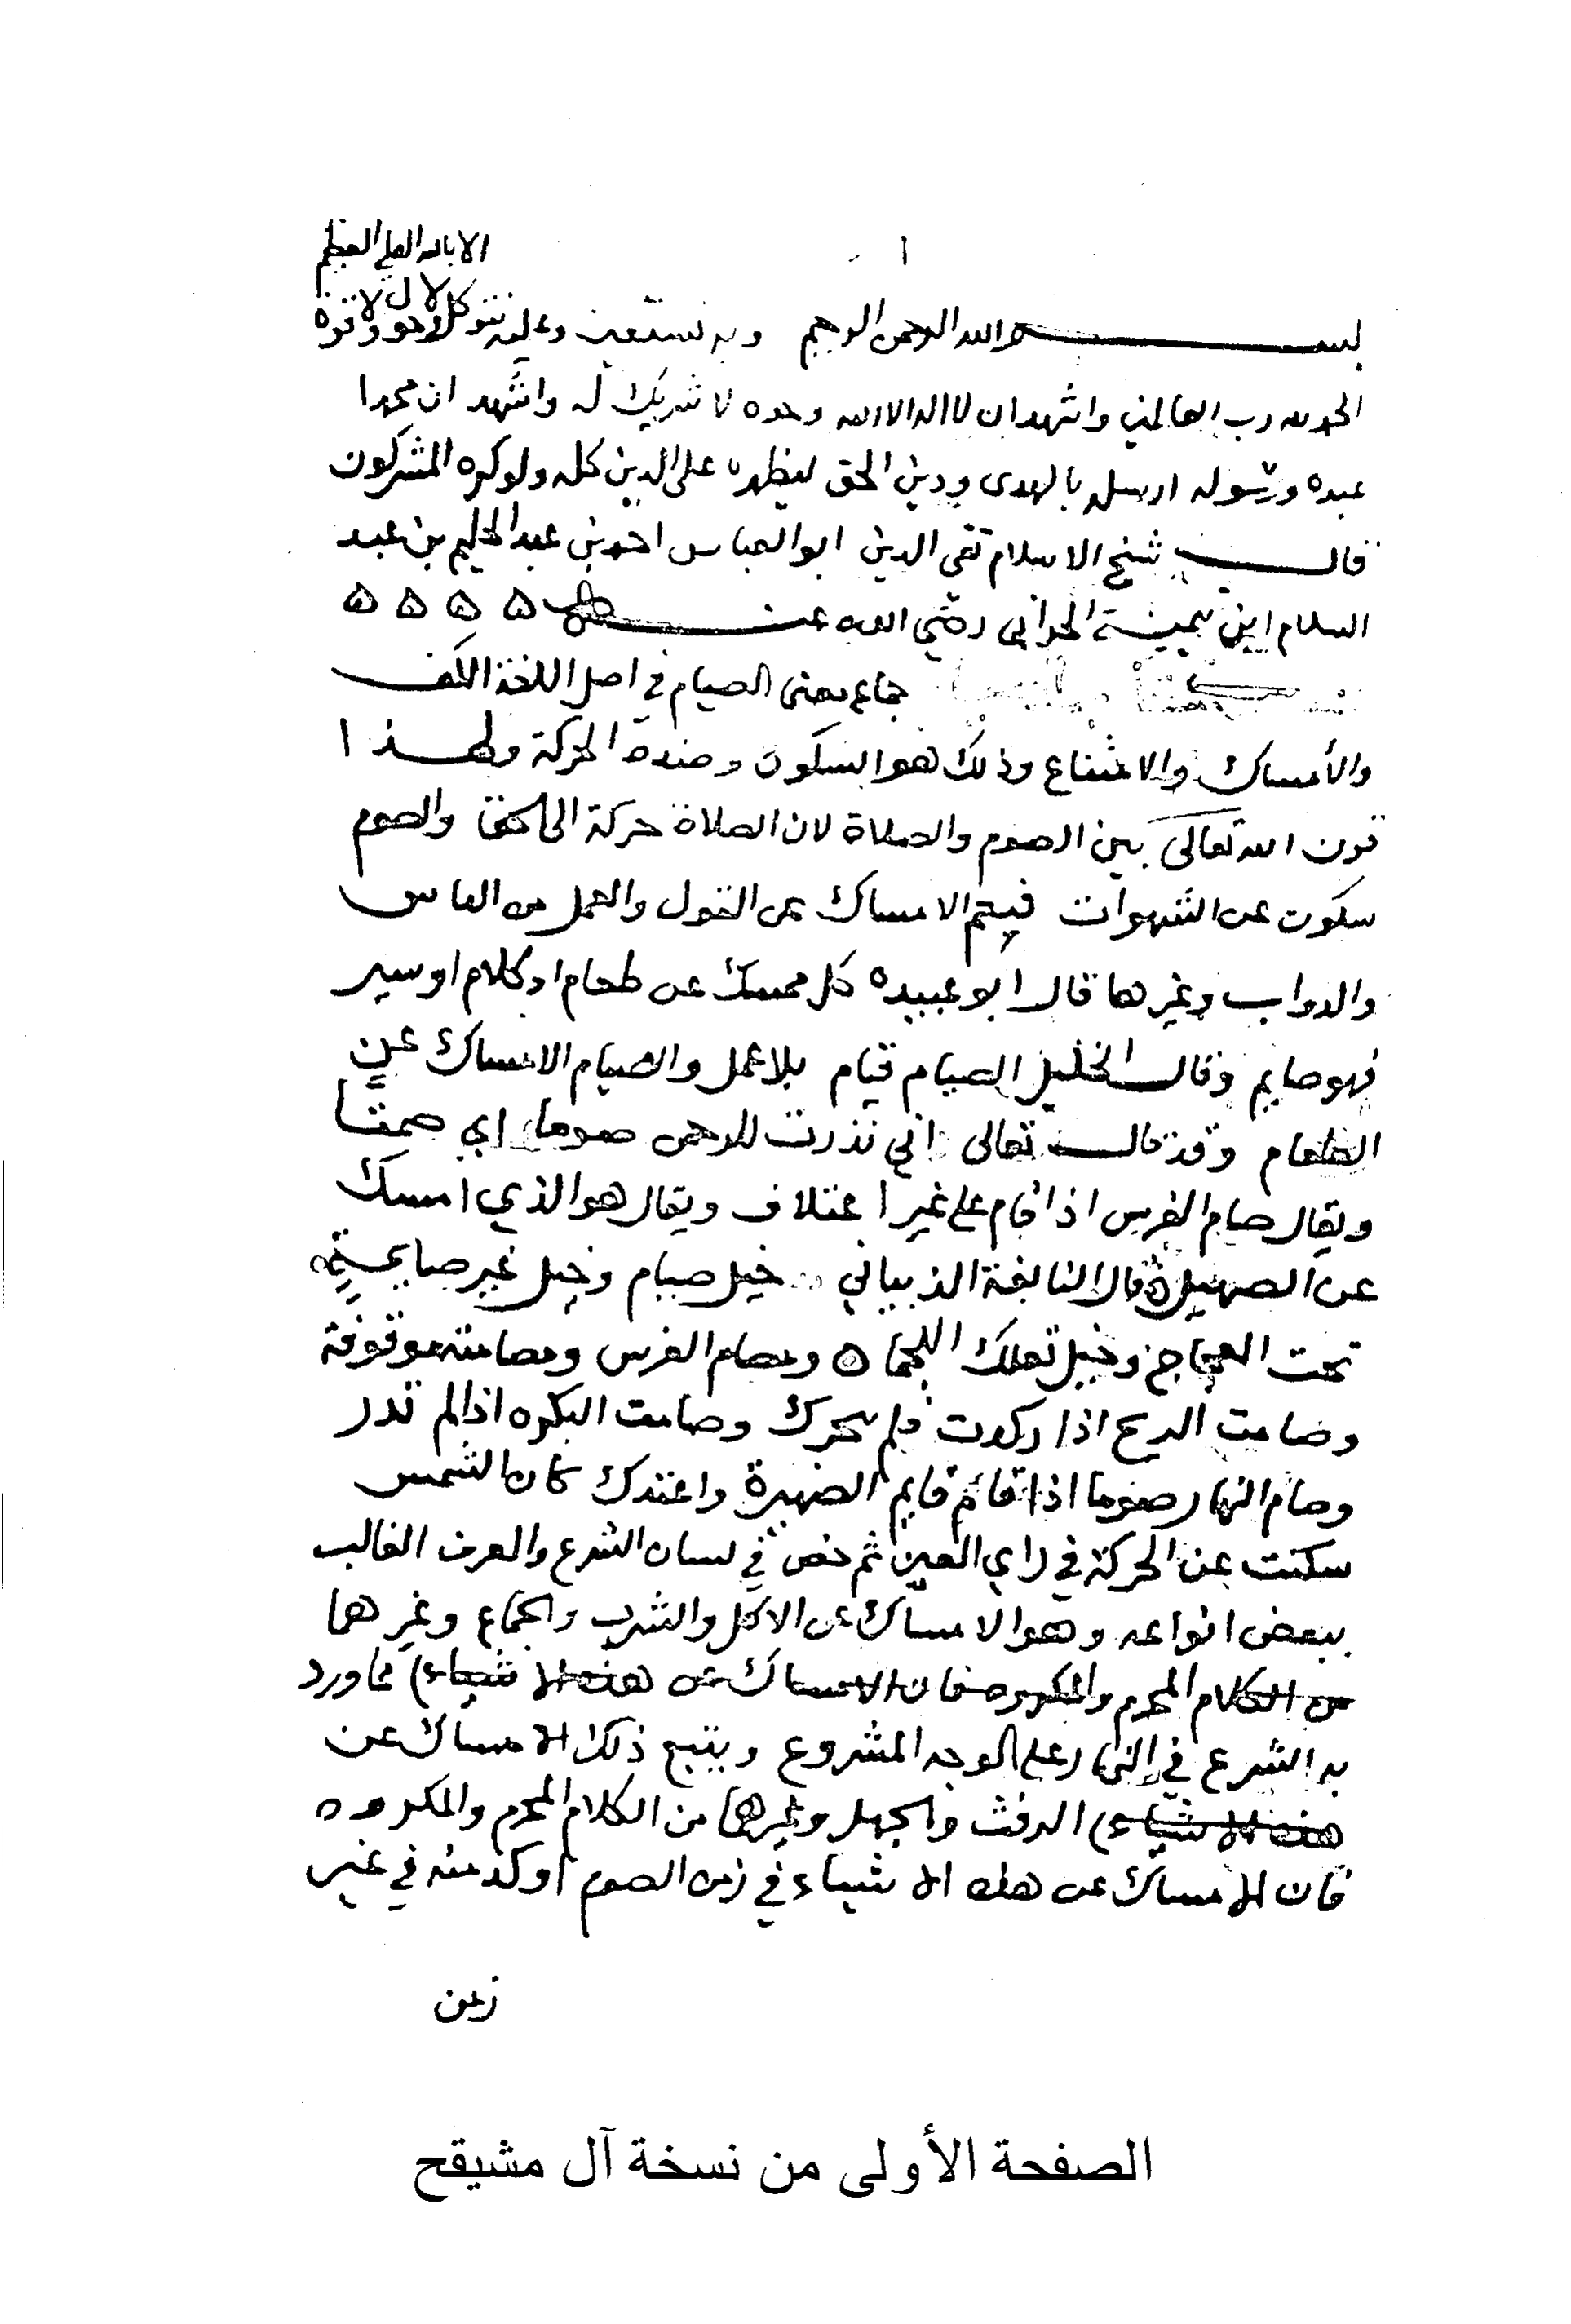 ١
بسم الله الرحمن الرحيم وبه نستعين وعليه نتوكل ولا حول ولا قوة
الا بالله العلي العظيم
الحمد لله رب العالمين واشهد ان لا اله الا الله وحده لا شريك له واشهد ان محمدا
عبده ورسوله ارسله بالهدى ودين الحق ليظهره على الدين كله ولو كره المشركون
قال شيخ الاسلام تقي الدين ابو العباس احمد بن عبد الحليم بن عبد
السلام ابن تيمية الحراني رضي الله عنه ه ه ه ه
جماع معنى الصيام في اصل اللغة الكف
والأمساك والامتناع وذلك هو السكون وضده الحركة ولهذا
قرن الله تعالى بين الصوم والصلاة لان الصلاة حركة الى الحق والصوم
سكون عن الشهوات فيعم الامساك عن القول والعمل من الناس
والدواب وغيرها قال ابو عبيده كل ممسك عن طعام او كلام او سير
فهو صايم وقال الخليل الصيام قيام بلا عمل والصيام الامساك عن
الطعام وقد قال تعالى اني نذرت للرحمن صوما اي صمتا
ويقال صام الفرس اذا قام على غير اعتلاف ويقال هو الذي امسك
عن الصهيل ه قال النابغة الذبياني خيل صيام وخيل غير صايمة
تحت العجاج وخيل تعلك اللجما ه ومصام الفرس ومصامته موقوفة
وصامت الريح اذا ركدت فلم تتحرك وصامت البكره اذا لم تدر
وصام النهار صوما اذا قام قايم الضهيرة واعتدل كان الشمس
سكنت عن الحركة في راي العين ثم خص في لسان الشرع والعرف الغالب
ببعض انواعه وهو الامساك عن الاكل والشرب والجماع وغيرهما
من الكلام المحرم والمكروه فان الامساك عن هذه الاشياء مما ورد
به الشرع في النهار على الوجه المشروع ويتبع ذلك الامساك عن
هذه الاشياء الرفث والجهل وغيرهما من الكلام المحرم والمكروه
فان الامساك عن هذه الاشياء في زمن الصوم اوكد منه في غير
زمن
الصفحة الأولى من نسخة آل مشيقح